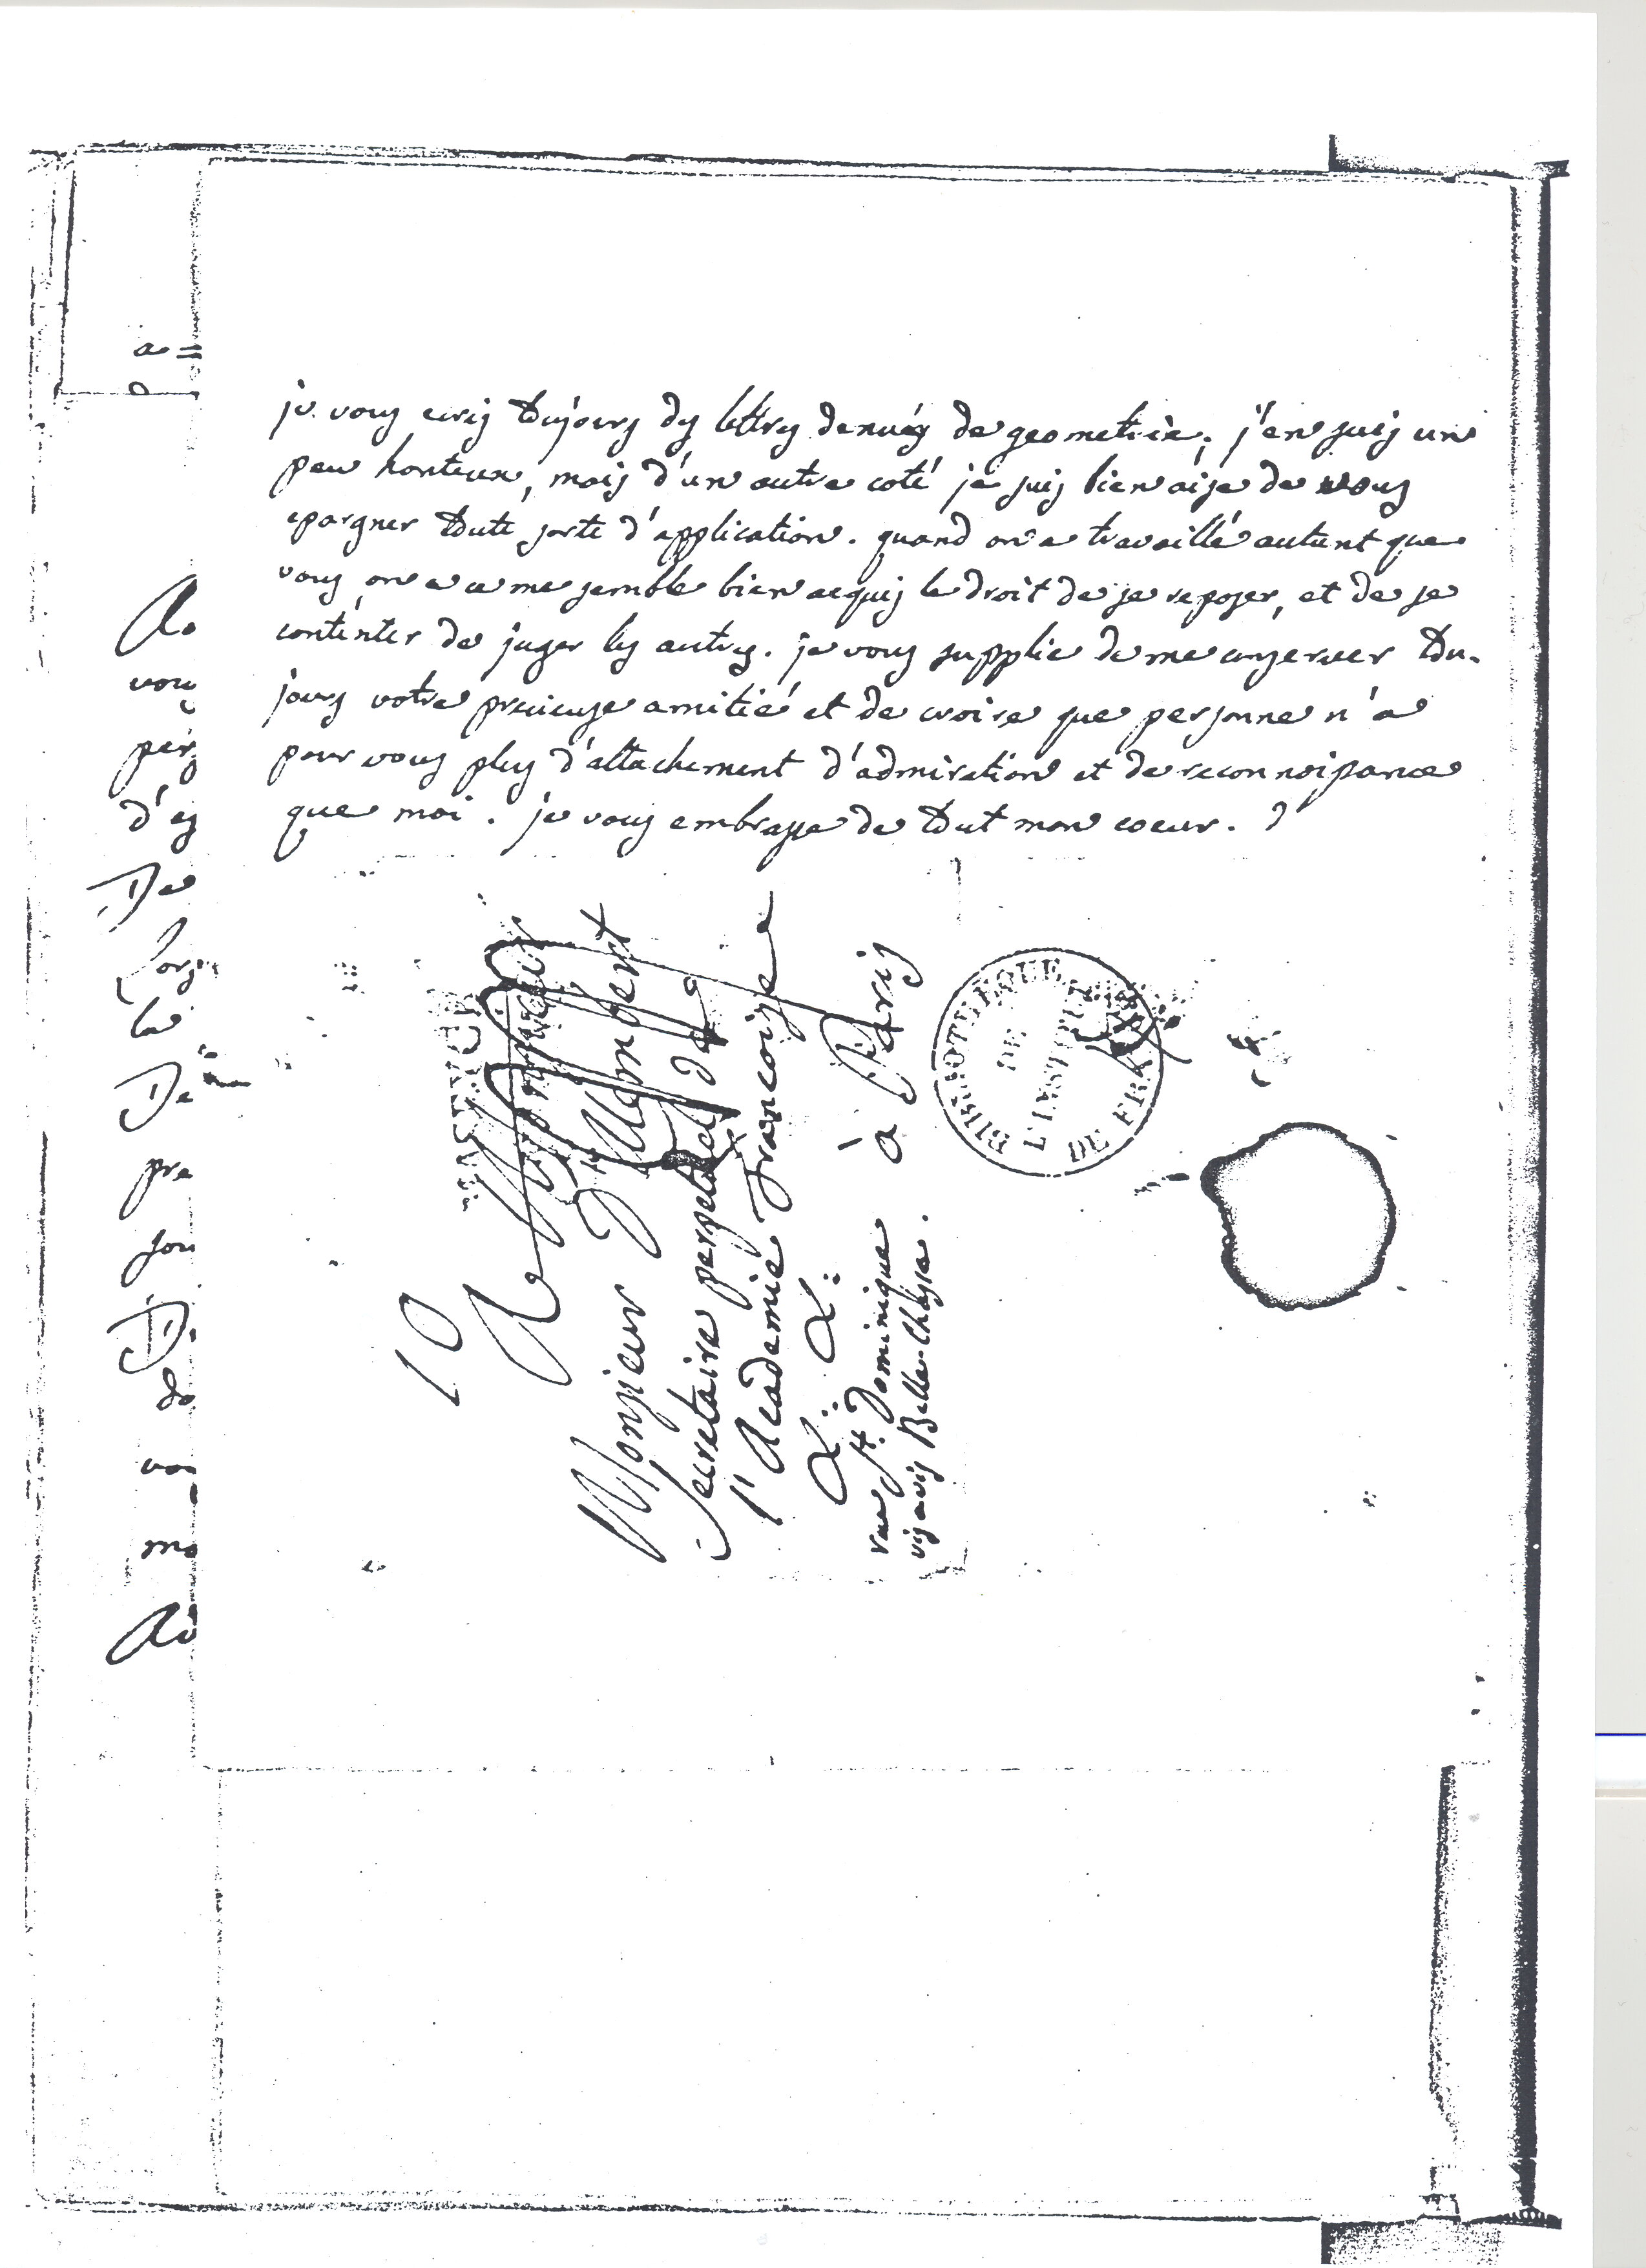 je vous ecris toujours des lettres denuées de geometrie; j'en suis un
peu honteux, mais d'un autre coté je suis bien aise de vous
epargner toute sorte d'application. quand on a travaillé autant que
vous on a ce me semble bien acquis le droit de se reposer, et de se
contenter de juger les autres. je vous supplie de me conserver tou-
jours votre precieuse amitié et de croire que personne n'a
pour vous plus d'attachement d'admiration et de reconnoissance
que moi. je vous embrasse de tout mon coeur.
10
A Monsieur
Monsieur D'Alembert
Secretaire perpetuel de
l'Academie françoise
rue St. Dominique
vis avis Belle-Chasse.
à Paris
BIBLIOTHEQUE
DE
L'INSTITUT
DE FRANCE
a =
vou
per
d'es
De
la
De
pre
sou
D
do
vo
mo